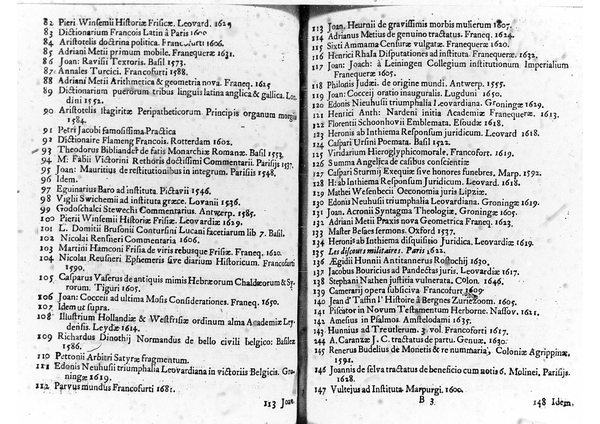 82 Pieri Winsemii Historiæ Frisicæ. Leovard. 1629
83 Dictionarium Francois Latin à Paris
84 Aristotelis doctrina politica. Francofurti 1606.
85 Adriani Metii primum mobile. Franequeræ 1631.
86 Joan: Ravisii Textoris. Basil 1573.
87 Annales Turcici. Francofurti 1588.
88 Adriani Metii Arithmetica & geometria nova. Franeq. 1625
89 Dictionarium puerorum tribus linguis latina anglica & gallica. Londini 1552.
90 Aristotelis stagiritæ Peripatheticorum Principis organum
1584.
91 Petri Jacobi famosissima Practica
92 Dictionaire Flameng Francois. Rotterdam 1602.
93 Theodorus Bibliander de fatis Monarchiæ Romanæ. Basil 1553.
94 M: Fabii Victorini Rethoris doctissimi Commentarii. Parisijs 1537.
95 Joan: Mauritius de restitutionibus in integrum. Parisiis 1548.
96 Idem.
97 Eguinarius Baro ad instituta Pictavii 1546.
98 Viglii Swichemii ad instituta græce. Lovanii 1536.
99 Godoschalci Stewechi Commentarius. Antwerp. 1585.
100 Pierii Winsemii Historiæ Frisicæ. Leovardiæ 1629.
101 L. Domitii Brusonii Contursini Lucani facetiarum lib 7. Basil.
102 Nicolai Rensieri Commentaria 1606.
103 Martini Hamconi Frisia de viris rebusque Frisiæ. Franeq. 1620.
104 Nicolai Reusneri Ephemeris sive diarium Historicum. Francofurti
1590.
105 Casparus Vaserus de antiquis mimis Hebræorum Chaldæorum & Syrorum. Tiguri 1605.
106 Joan: Cocceii ad ultima Mosis Considerationes. Franeq. 1650.
107 Idem ut supra.
108 Illustrium Hollandiæ & Westfrisiæ ordinum alma Academiæ Leydensis. Leydæ 1614.
109 Richardus Dinothij Normandus de bello civili belgico: Basileæ
1586.
110 Petronii Arbitri Satyræ fragmentum.
111 Edonis Neuhusii triumphalia Leovardiana in victoriis Belgicis. Groningæ 1619.
112 Parvus mundus Francofurti 1681.
113 Joan.
113 Joan. Heurnii de gravissimis morbis mulierum 1607.
114 Adrianus Metius de genuino tractatus. Franeq. 1624.
115 Sixti Ammama Censuræ vulgatæ. Franequeræ 1620.
116 Henrici Rhala Disputationes ad instituta. Franequeræ 1632.
117 Joan: Joach: à Leiningen Collegium institutionum Imperialium
Franequeræ 1605.
118 Philonis Judæi. de origine mundi. Antwerp. 1555.
119 Joan: Cocceij oratio inauguralis. Lugduni 1650.
120 Edonis Nieuhusii triumphalia Leovardiana. Groningæ 1629.
121 Henrici Anth: Nardeni initia Academiæ Franequeræ 1613.
122 Florentii Schoonhovii Emblemata. Efoudæ 1618.
123 Heronis ab Inthiema Responsum juridicum. Leovard 1618.
124 Caspari Ursini Poemata. Basil 1522.
125 Viridarium Hieroglyphicomorale. Francofort. 1619.
126 Summa Angelica de casibus conscientiæ
127 Caspari Sturmij Exequiæ sive honores funebres, Marp. 1592.
128 H: ab Inthiema Responsum Juridicum. Leovard. 1618.
129 Mathei Wesenbecii Oeconomia juris Lipziæ.
130 Edonis Neuhusii triumphalia Leovardiana. Groningæ 1629.
131 Joan. Acronii Syntagma Theologiæ, Groningæ 1605.
132 Adriani Metii Praxis nova Geometrica Franeq. 1623.
133 Master Besaes sermones. Oxford 1537.
134 Heronis ab Inthiema disquisitio Juridica. Leovardiæ 1619.
135 Les discours militaires. Paris 1622.
136 Ægidii Hunnii Antitannerus Rostochij 1630.
137 Jacobus Bouricius ad Pandectas juris. Leovardiæ 1617.
138 Stephani Nathen justitia vulnerata, Colon. 1646.
139 Camerarij opera subsiciva Francofurt 1609.
140 Jean d'Taffin l'Histoire à Bergnes Zurienzoom. 1605.
141 Piscator in Novum Testamentum Herborne. Nassov. 1621.
142 Amesius in Psalmos. Amstelodami 1635.
143 Hunnius ad Treutlerum. 3 vol. Francofurti 1617.
144 A. Caranzæ J. C. tractatus de partu. Genuæ. 1630.
145 Renerus Budelius de Monetis & re nummaria, Coloniæ Agrippinæ,
1591.
146 Joannis de selva tractatus de beneficio cum notis 6. Molinei, Parisijs.
1628.
147 Vultejus ad Instituta. Marpurgi. 1600.
B 3.
148 Idem.